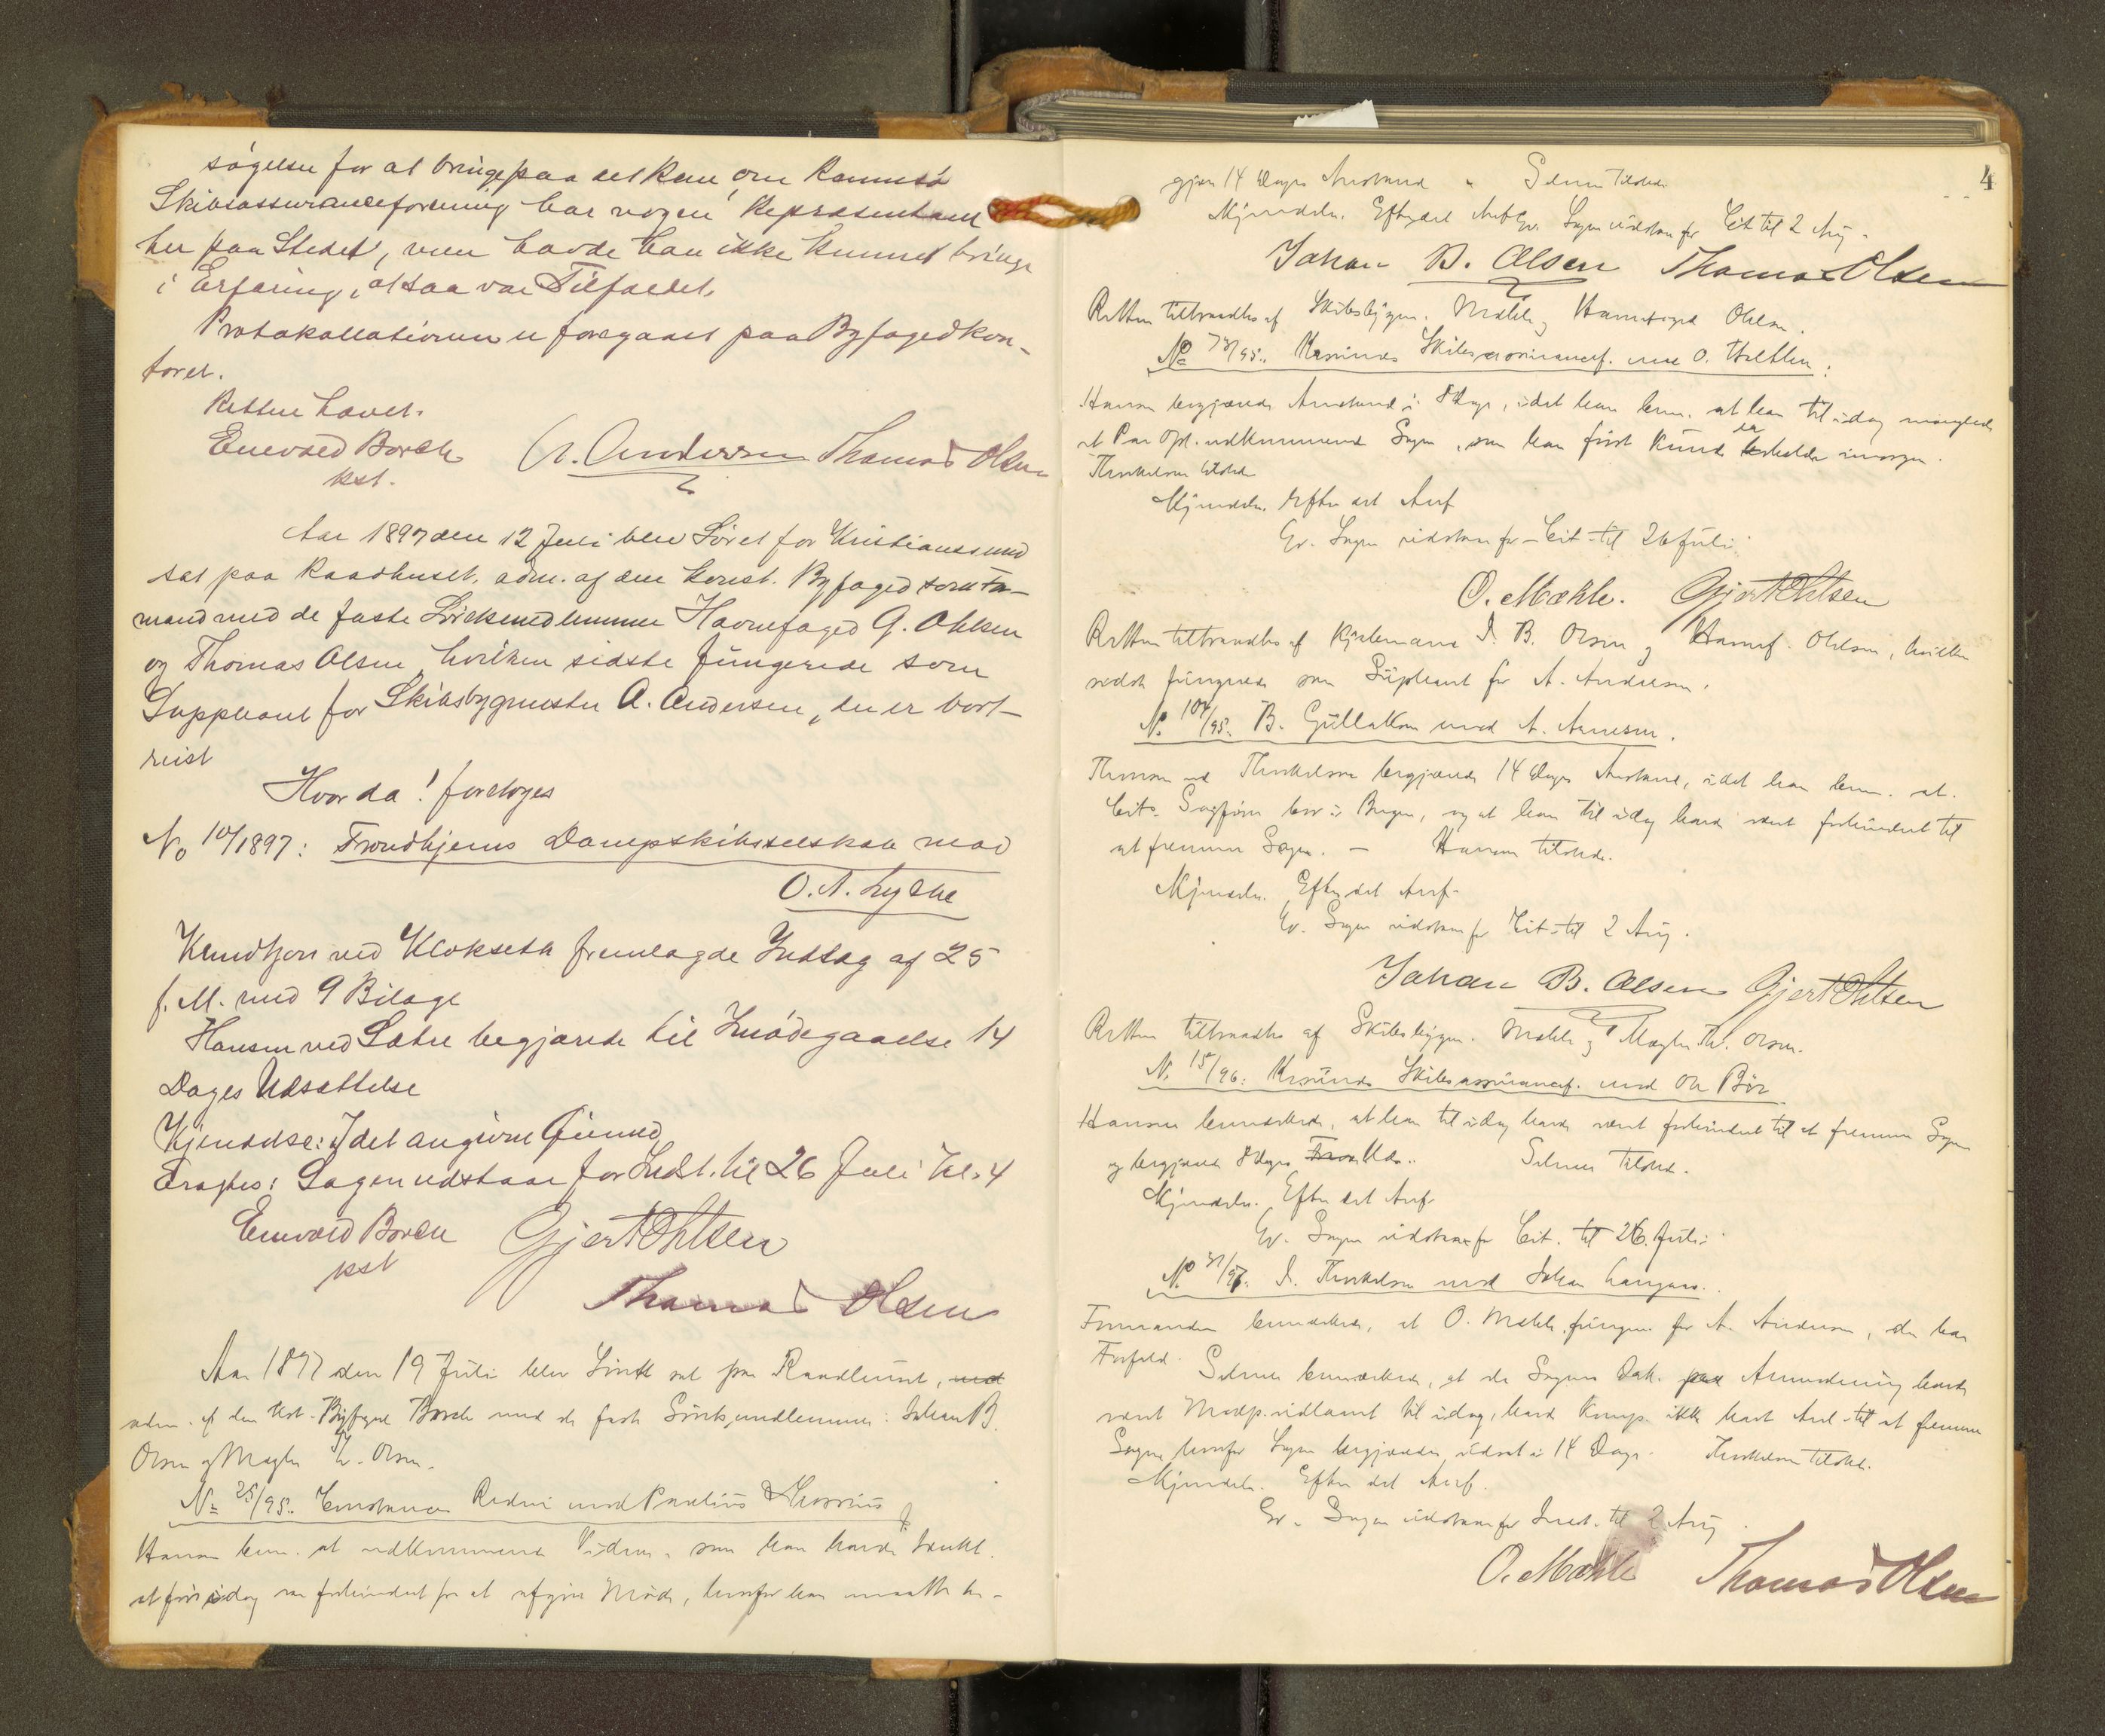 søgelse for at bringe paa det Rene, om Ramsø
Skibsassuranceforening har nogen Repræsentant
her paa Stedet, men havde han ikke kunnet bringe
i Erfaring, at saa var Tilfældet.
Protokollationen er foregaaet paa Byfogedkon-
toret.
Retten hævet.
Enevold Borch A. Andersen Thomas Olsen
kst.
Aar 1897 den 12 Juli blev Søret for Kristianssund
sat paa Raadhuset, adm. af den konst. Byfoged som For-
mand med de faste Søretsmedlemmer Havnefoged G. Ohlsen
og Thomas Olsen, hvilken sidste fungerede som
Suppleant for Skibsbygmester A. Andersen, der er bort-
reist
Hvorda! foretoges
No 10/1897: Trondhjems Dampskibsselskab mod
O. A. Lyche
Knudtzon ved Klokseth fremlagde Indlæg af 25
f. M. med 9 Bilage
Hansen ved Sæther begjærede til Imødegaaelse 14
Dages Udsættelse
Kjendelse: I det angivne Øiemed
Eragtes: Sagen udstaar for Indst. til 26 Juli kl. 4
Enevold Borch Gjert Ohlsen
kst
Thomas Olsen
Aar 1897 den 19 Juli blev Sørett sat paa Raadhuset, med
adm. af den kst. Byfoged Borch med de faste Søretsmedlemmer: Johan B.
Olsen og Mægler Th. Olsen.
No 25/95. Constance Redni mod Paulus &
Hansen bem. at vedkommende Vidne, som han havde tænkt
at føre idag var forhindret for at afgive Møde, hvorfor han maatte be-
4
gjære 14 Dages Anstand. Selmer tilstede
Kjendelse. Efter det Anf. Er. Sagen udstaar for Cit til 2 Aug.
Johan B. Olsen Thomas Olsen
Retten tiltraadtes af Skibsbygm. Mæhle og Havnefoged Ohlsen.
No 73/95. Krsunds Skibsassurancef. mod O.
Hansen begjærede Anstand i 8 Dage, idet han bem. at han til idag manglede
et Par Opl. vedkommende Sagen, som han først kunde erholde imorgen.
Thorkelsen tilstede
Kjendelse. Efter det Anf
Er. Sagen udstaar for Cit til 26 Juli
O. Mæhle. Gjert Ohlsen
Retten tiltraadtes af Kjøbmand J. B. Olsen og Havnef. Ohlsen, hvilken
sidste fungerede som Supleant for A. Andersen.
No 104/95. B. Gullakson mod A. Arnesen.
ved Thorkelsen begjærede 14 Dages Anstand, idet han bem. at
Cits Sagfører bor i Bergen, og at han til idag havde været forhindret til
at fremme Sagen. — Hansen tilstede.
Kjendelse. Efter det Anf.
Er. Sagen udstaar for Cit til 2 Aug.
Johan B. Olsen Gjert Ohlsen
Retten tiltraadtes af Skibsbygm. Mæhle og Mægler Th. Olsen.
No 15/96: Krsunds Skibsassurancef. mod Ole Bør
Hansen bemærkede, at han til idag havde været forhindret til at fremme Sagen
og begjærede 8 Dages Uds. Selmer tilstede.
Kjendelse. Efter det Anf.
Er. Sagen udstaar for Cit. til 26. Juli.
No 31/97. J. Thorkelsen mod Johan
Formanden bemærkede, at O. Mæhle fungerer for A. Andersen, der har
Forfald. Selmer bemærkede, at da Sagens Dok. paa Anmodning havde
været Modp. udlaant til idag, havde Komp. ikke havt Anl. til at fremme
Sagen, hvorfor Sagen begjæredes udsat i 14 Dage. Thorkelsen tilstede.
Kjendelse. Efter det Anf.
Er. Sagen udstaar for Indst. til 2 Aug
O. Mæhle Thomas Olsen